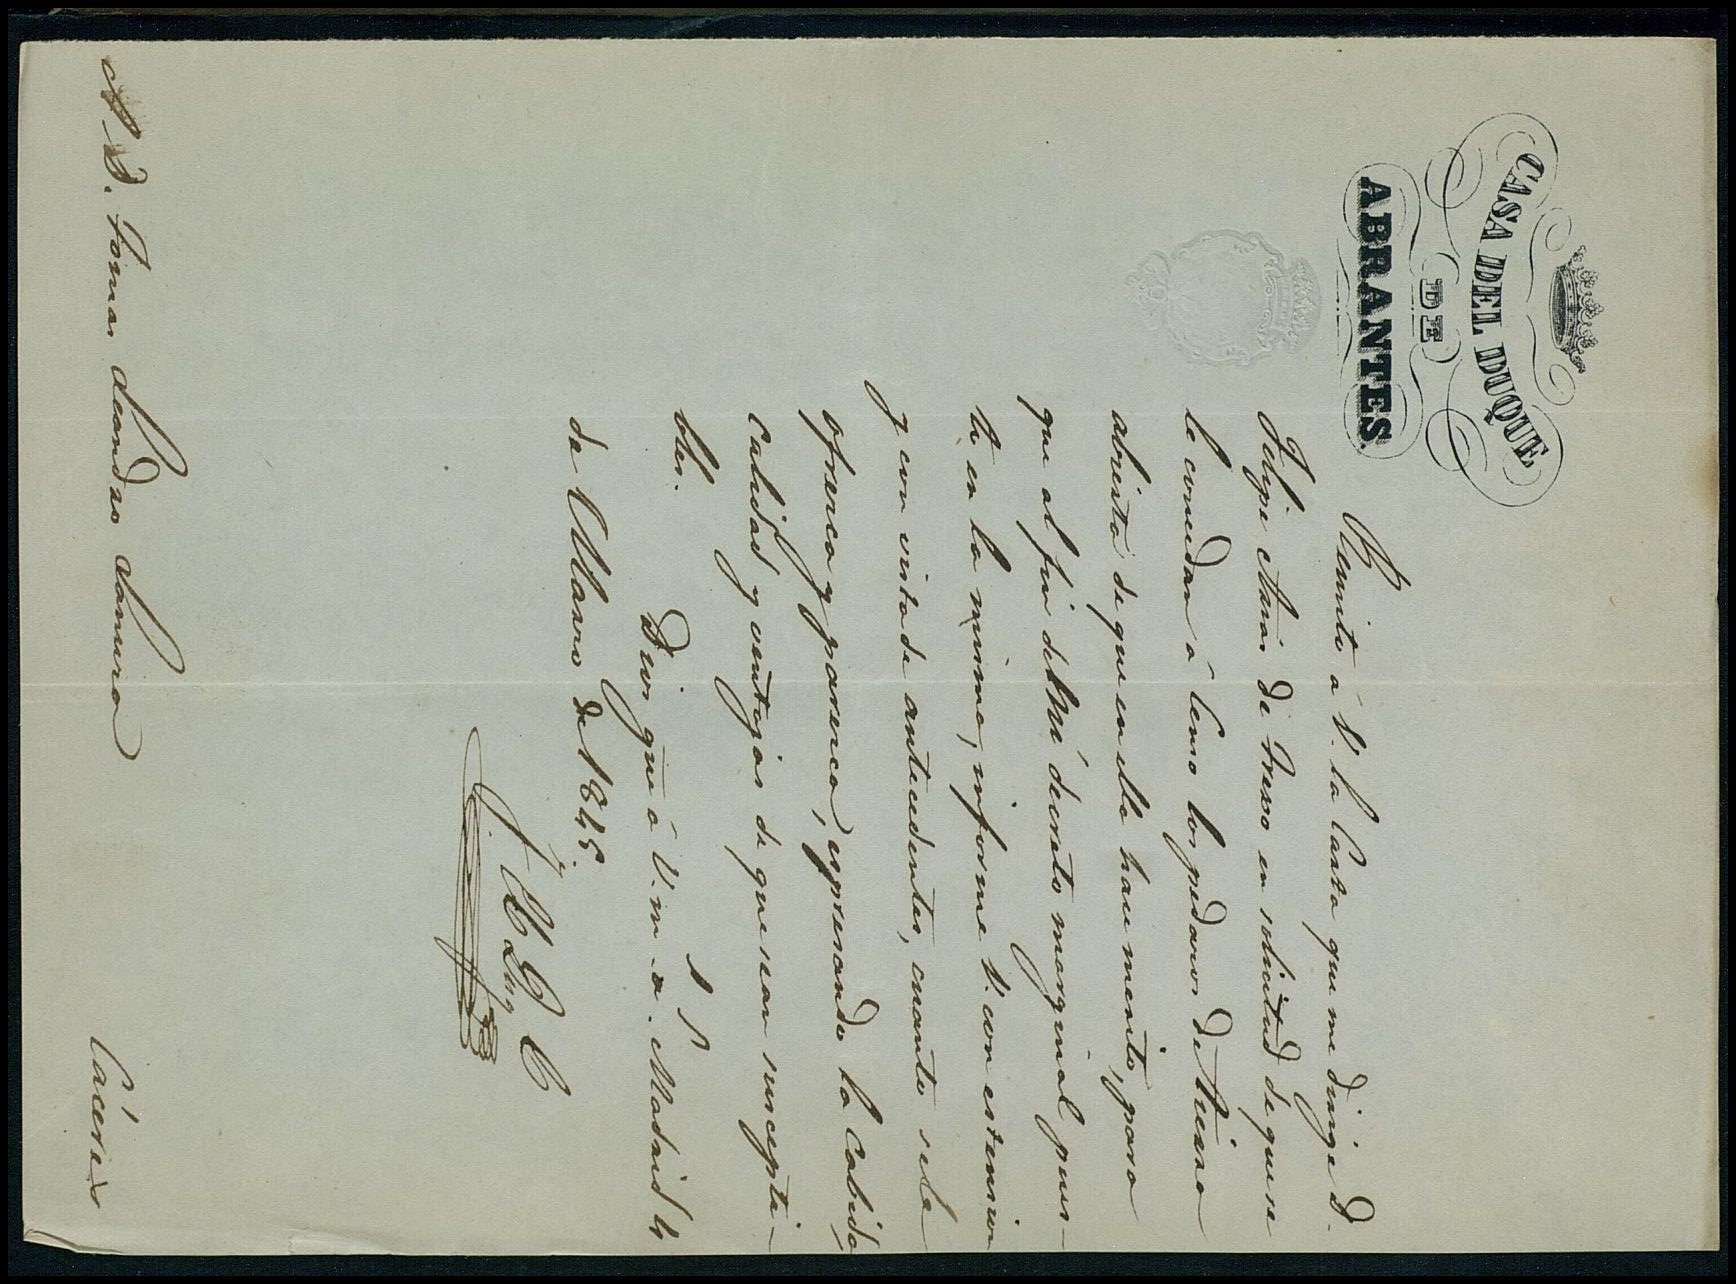 CASA DEL DUQUE
DE
ABRANTES.
Remito á V. la Carta que me dirige D.
Felipe Arias de Presno en solicitud de que se
le concedan á Censo los pedazos de terreno
abierto de que en ella hace mérito, para
que al fin del decreto marginal pues-
to en la misma, informe V. con estension
y con vista de antecedentes, cuanto se le
ofrezca y parezca, espresando la Cabida,
calidad y ventajas de que sean suscepti-
bles.
Dios gue á V. m. a. Madrid 4
de Marzo de 1845.
A D. Tomas Leandro
Cáceres